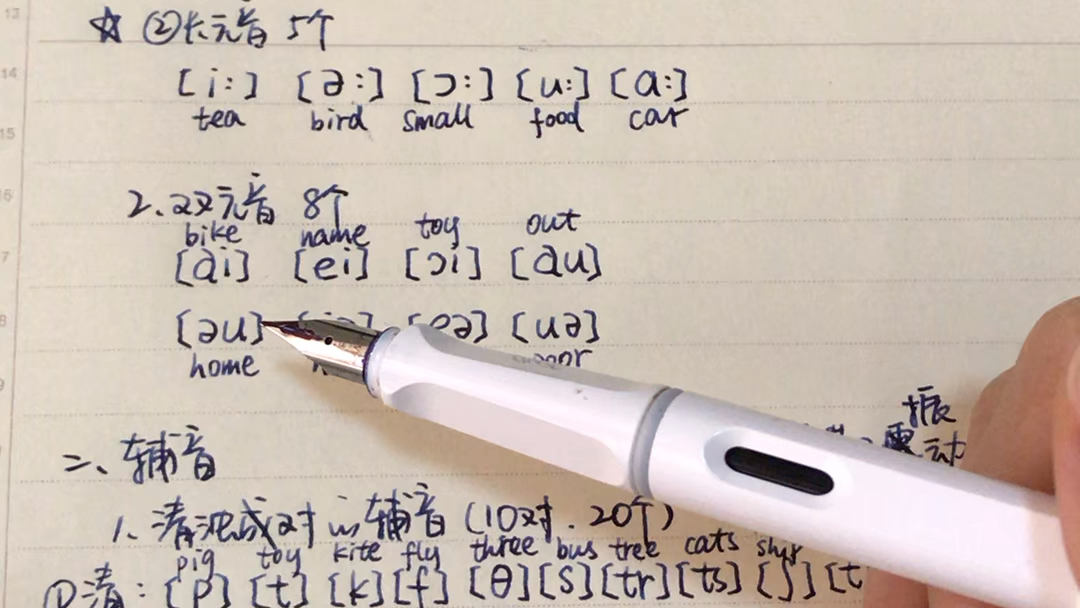 13
☆ ②长元音 5个
14
[i:] [ə:] [ɔ:] [u:] [a:]
tea bird small food car
15
16
2.双元音 8个
bike name toy out
7
[ai] [ei] [ɔi] [au]
8
[əu] [eə] [uə]
home
9
振
震动
二、辅音
1、清浊成对的辅音(10对.20个)
pig toy kite fly three bus tree cats
①清: [p] [t] [k] [f] [θ] [s] [tr] [ts] [ʃ] [t